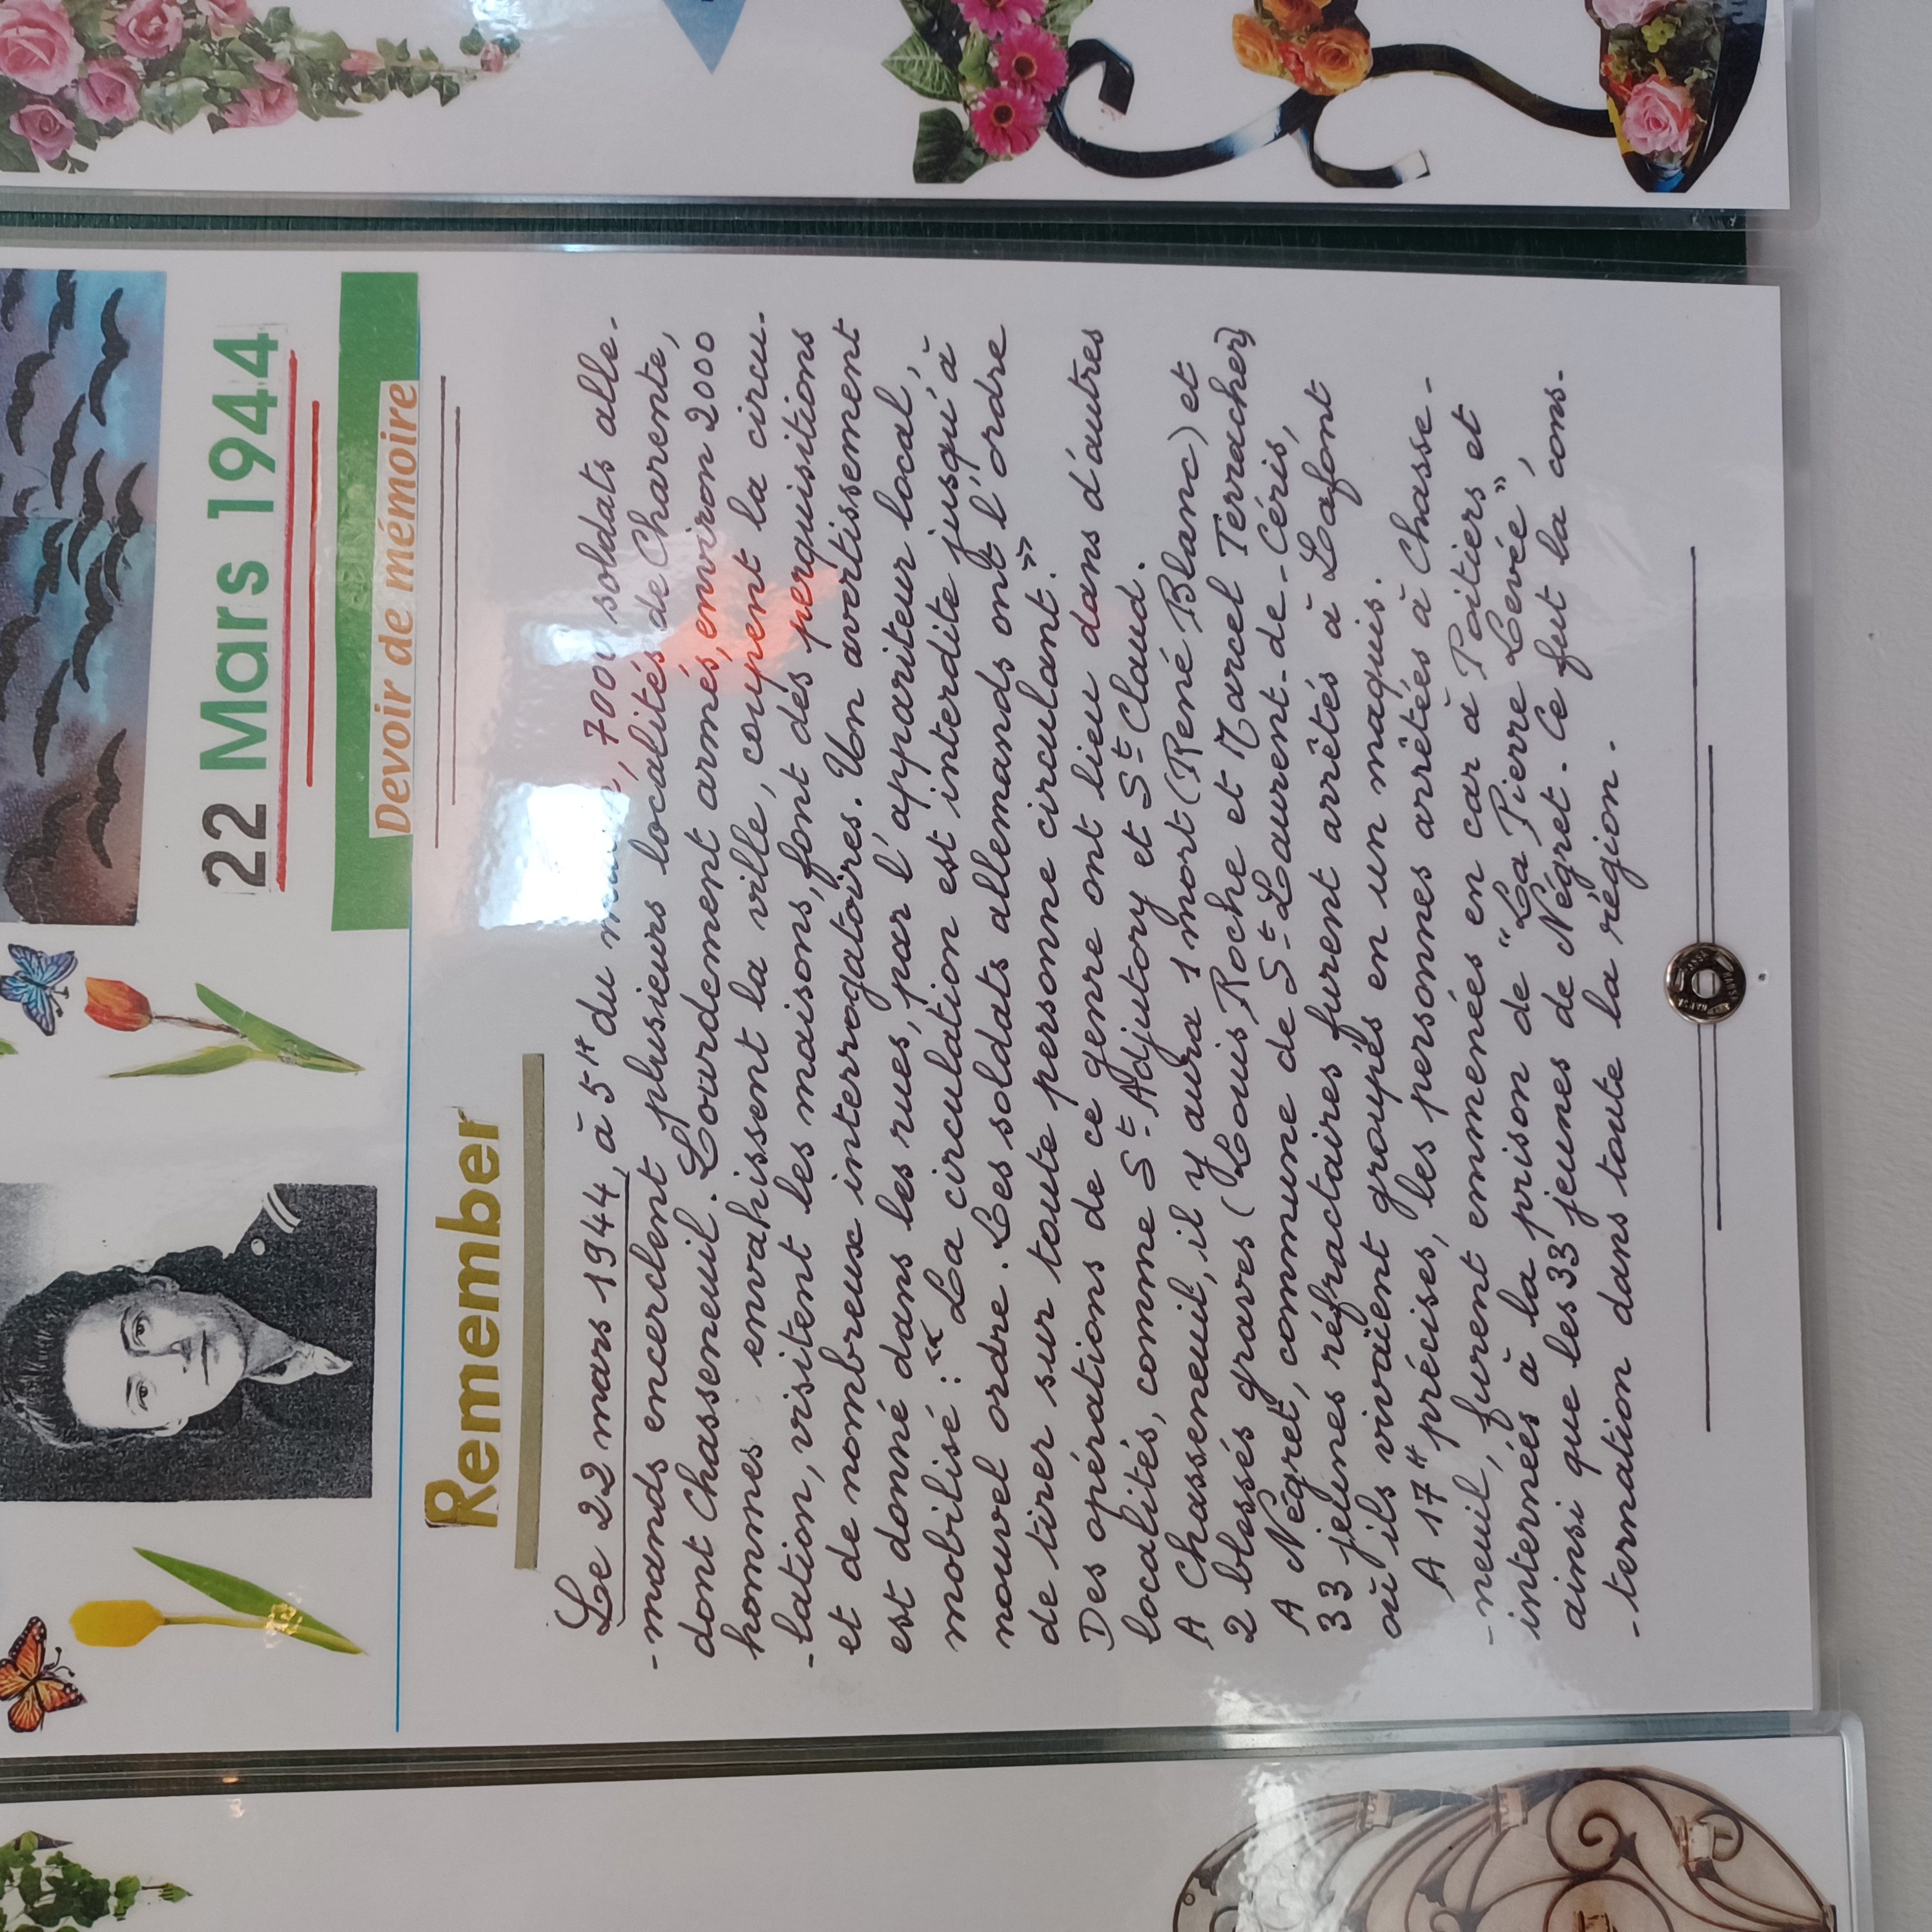 22 Mars 1944
Devoir de mémoire
Remember
Le 22 mars 1944, à 5H du matin, 7000 soldats alle-
-mands encerclent plusieurs localités de Charente,
dont Chasseneuil. Lourdement armés, environ 2000
hommes envahissent la ville, coupent la circu-
-lation, visitent les maisons, font des perquisitions
et de nombreux interrogatoires. Un avertissement
est donné dans les rues, par l'appariteur local,
mobilisé : « La circulation est interdite jusqu'à
nouvel ordre. Les soldats allemands ont l'ordre
de tirer sur toute personne circulant."
Des opérations de ce genre ont lieu dans d'autres
localités, comme St Adjutory et St Claud.
A Chasseneuil, il y aura 1 mort (René Blanc) et
2 blessés graves (Louis Roche et Marcel Terracher)
A Négret, commune de St Laurent-de-Céris,
33 jeunes réfractaires furent arrêtés à Lafont
où ils vivaïent groupés en un maquis.
A 17H précises, les personnes arrêtées à Chasse-
-neuil, furent emmenées en car à Poitiers et
internées à la prison de "La Pierre Levée",
ainsi que les 33 jeunes de Négret. Ce fut la cons-
-ternation dans toute la région.